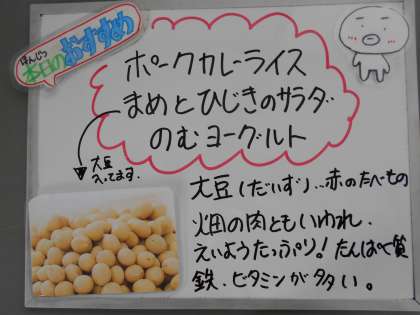 ほんじつ
本日のおすすめ
ポークカレーライス
まめとひじきのサラダ
のむヨーグルト
大豆
入ってます。
大豆(だいず)…赤のたべもの
畑の肉ともいわれ、
えいようたっぷり!たんぱく質
鉄、ビタミンが多い。